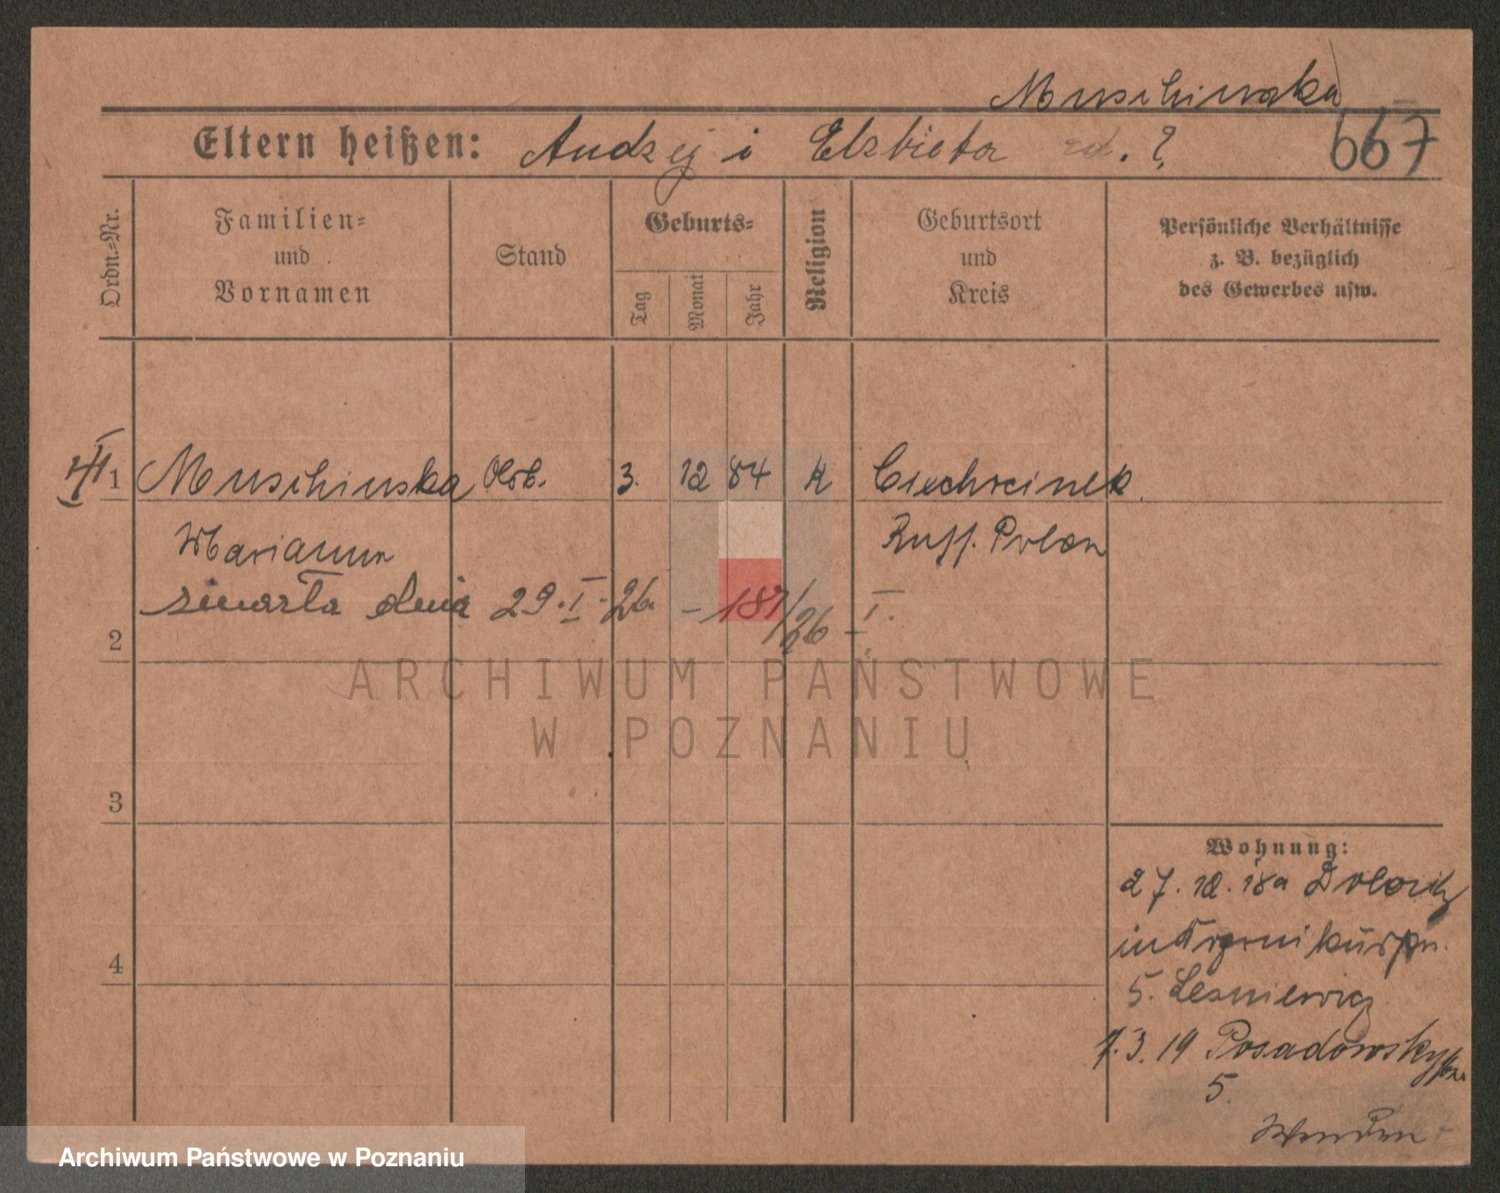 Muschinska
Eltern heißen: Andrzej i Elzbieta zd. ?
667
Ordn.-Nr.
Familien-
und
Vornamen
Stand
Geburts-
Tag
Monat
Jahr
Religion
Geburtsort
und
Kreis
Persönliche Verhältnisse
z. B. bezüglich
des Gewerbes usw.
1 Muschinska Arb. 3. 12 84 K Ciechocinek
Marianna Russ. Polen
zmarła dnia 29.I.26. – 187/26 I.
2
ARCHIWUM PAŃSTWOWE
W POZNANIU
3
Wohnung:
27. 12. 18
4
5. Lesniewicz
7. 3. 19 Posadowsky
5.
Wenden
Archiwum Państwowe w Poznaniu